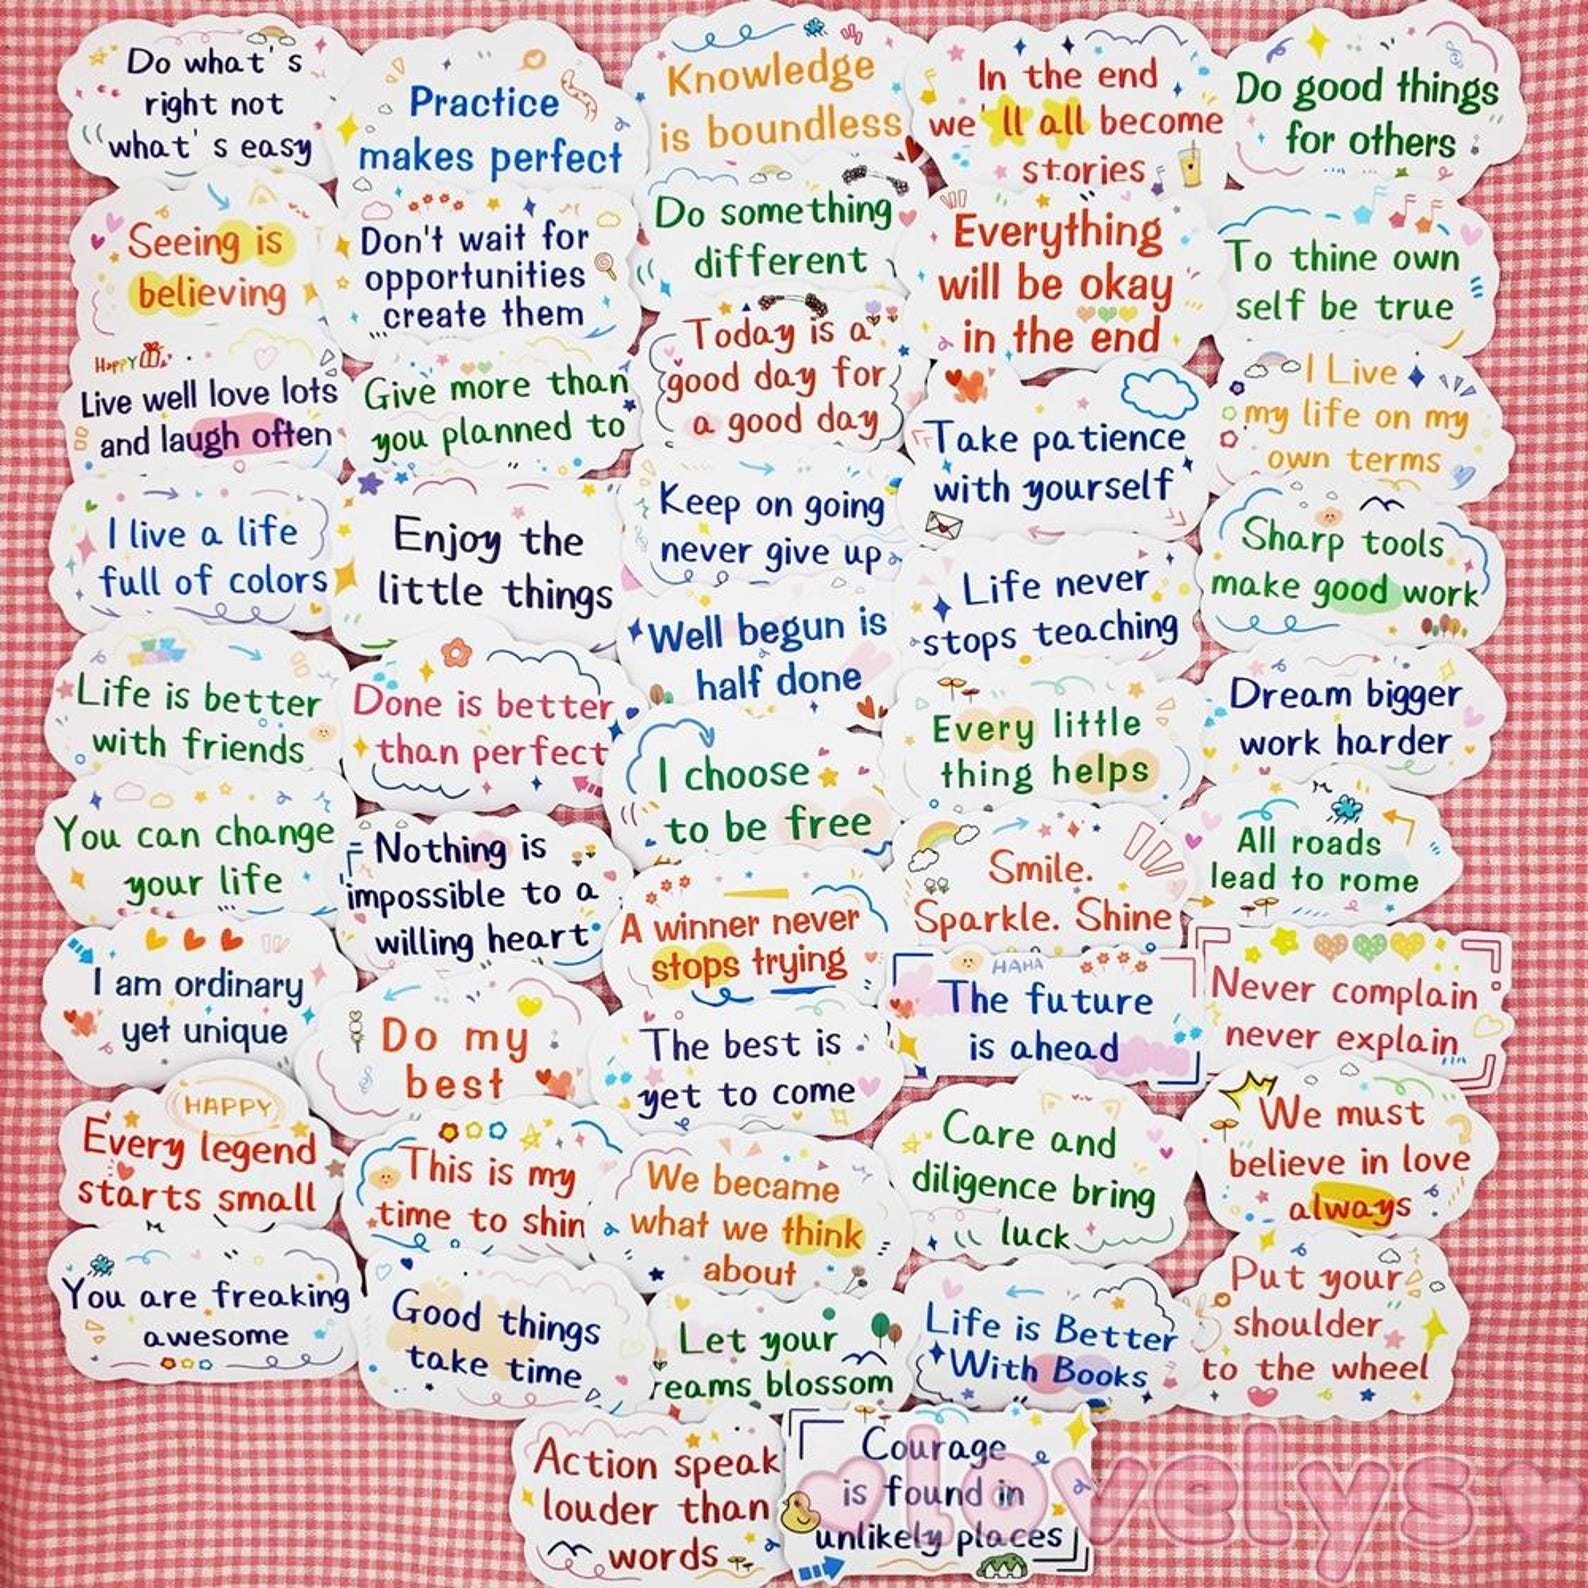 Do what's
right not
what's easy
Practice
makes perfect
Knowledge
is boundless
In the end
we'll all become
stories
Do good things
for others
Seeing is
believing
Don't wait for
opportunities
create them
Do something
different
Everything
will be okay
in the end
To thine own
self be true
Happy
Live well love lots
and laugh often
Give more than
you planned to
Today is a
good day for
a good day
Take patience
with yourself
I Live
my life on my
own terms
I live a life
full of colors
Enjoy the
little things
Keep on going
never give up
Life never
stops teaching
Sharp tools
make good work
Life is better
with friends
Done is better
than perfect
Well begun is
half done
Every little
thing helps
Dream bigger
work harder
You can change
your life
Nothing is
impossible to a
willing heart
I choose
to be free
Smile.
Sparkle. Shine
All roads
lead to rome
I am ordinary
yet unique
Do my
best
A winner never
stops trying
HAHA
The future
is ahead
Never complain
never explain
HAPPY
Every legend
starts small
This is my
time to shin
The best is
yet to come
Care and
diligence bring
luck
We must
believe in love
always
You are freaking
awesome
Good things
take time
We became
what we think
about
Let your
reams blossom
Life is Better
With Books
Put your
shoulder
to the wheel
Action speak
louder than
words
Courage
is found in
unlikely places
lovelys